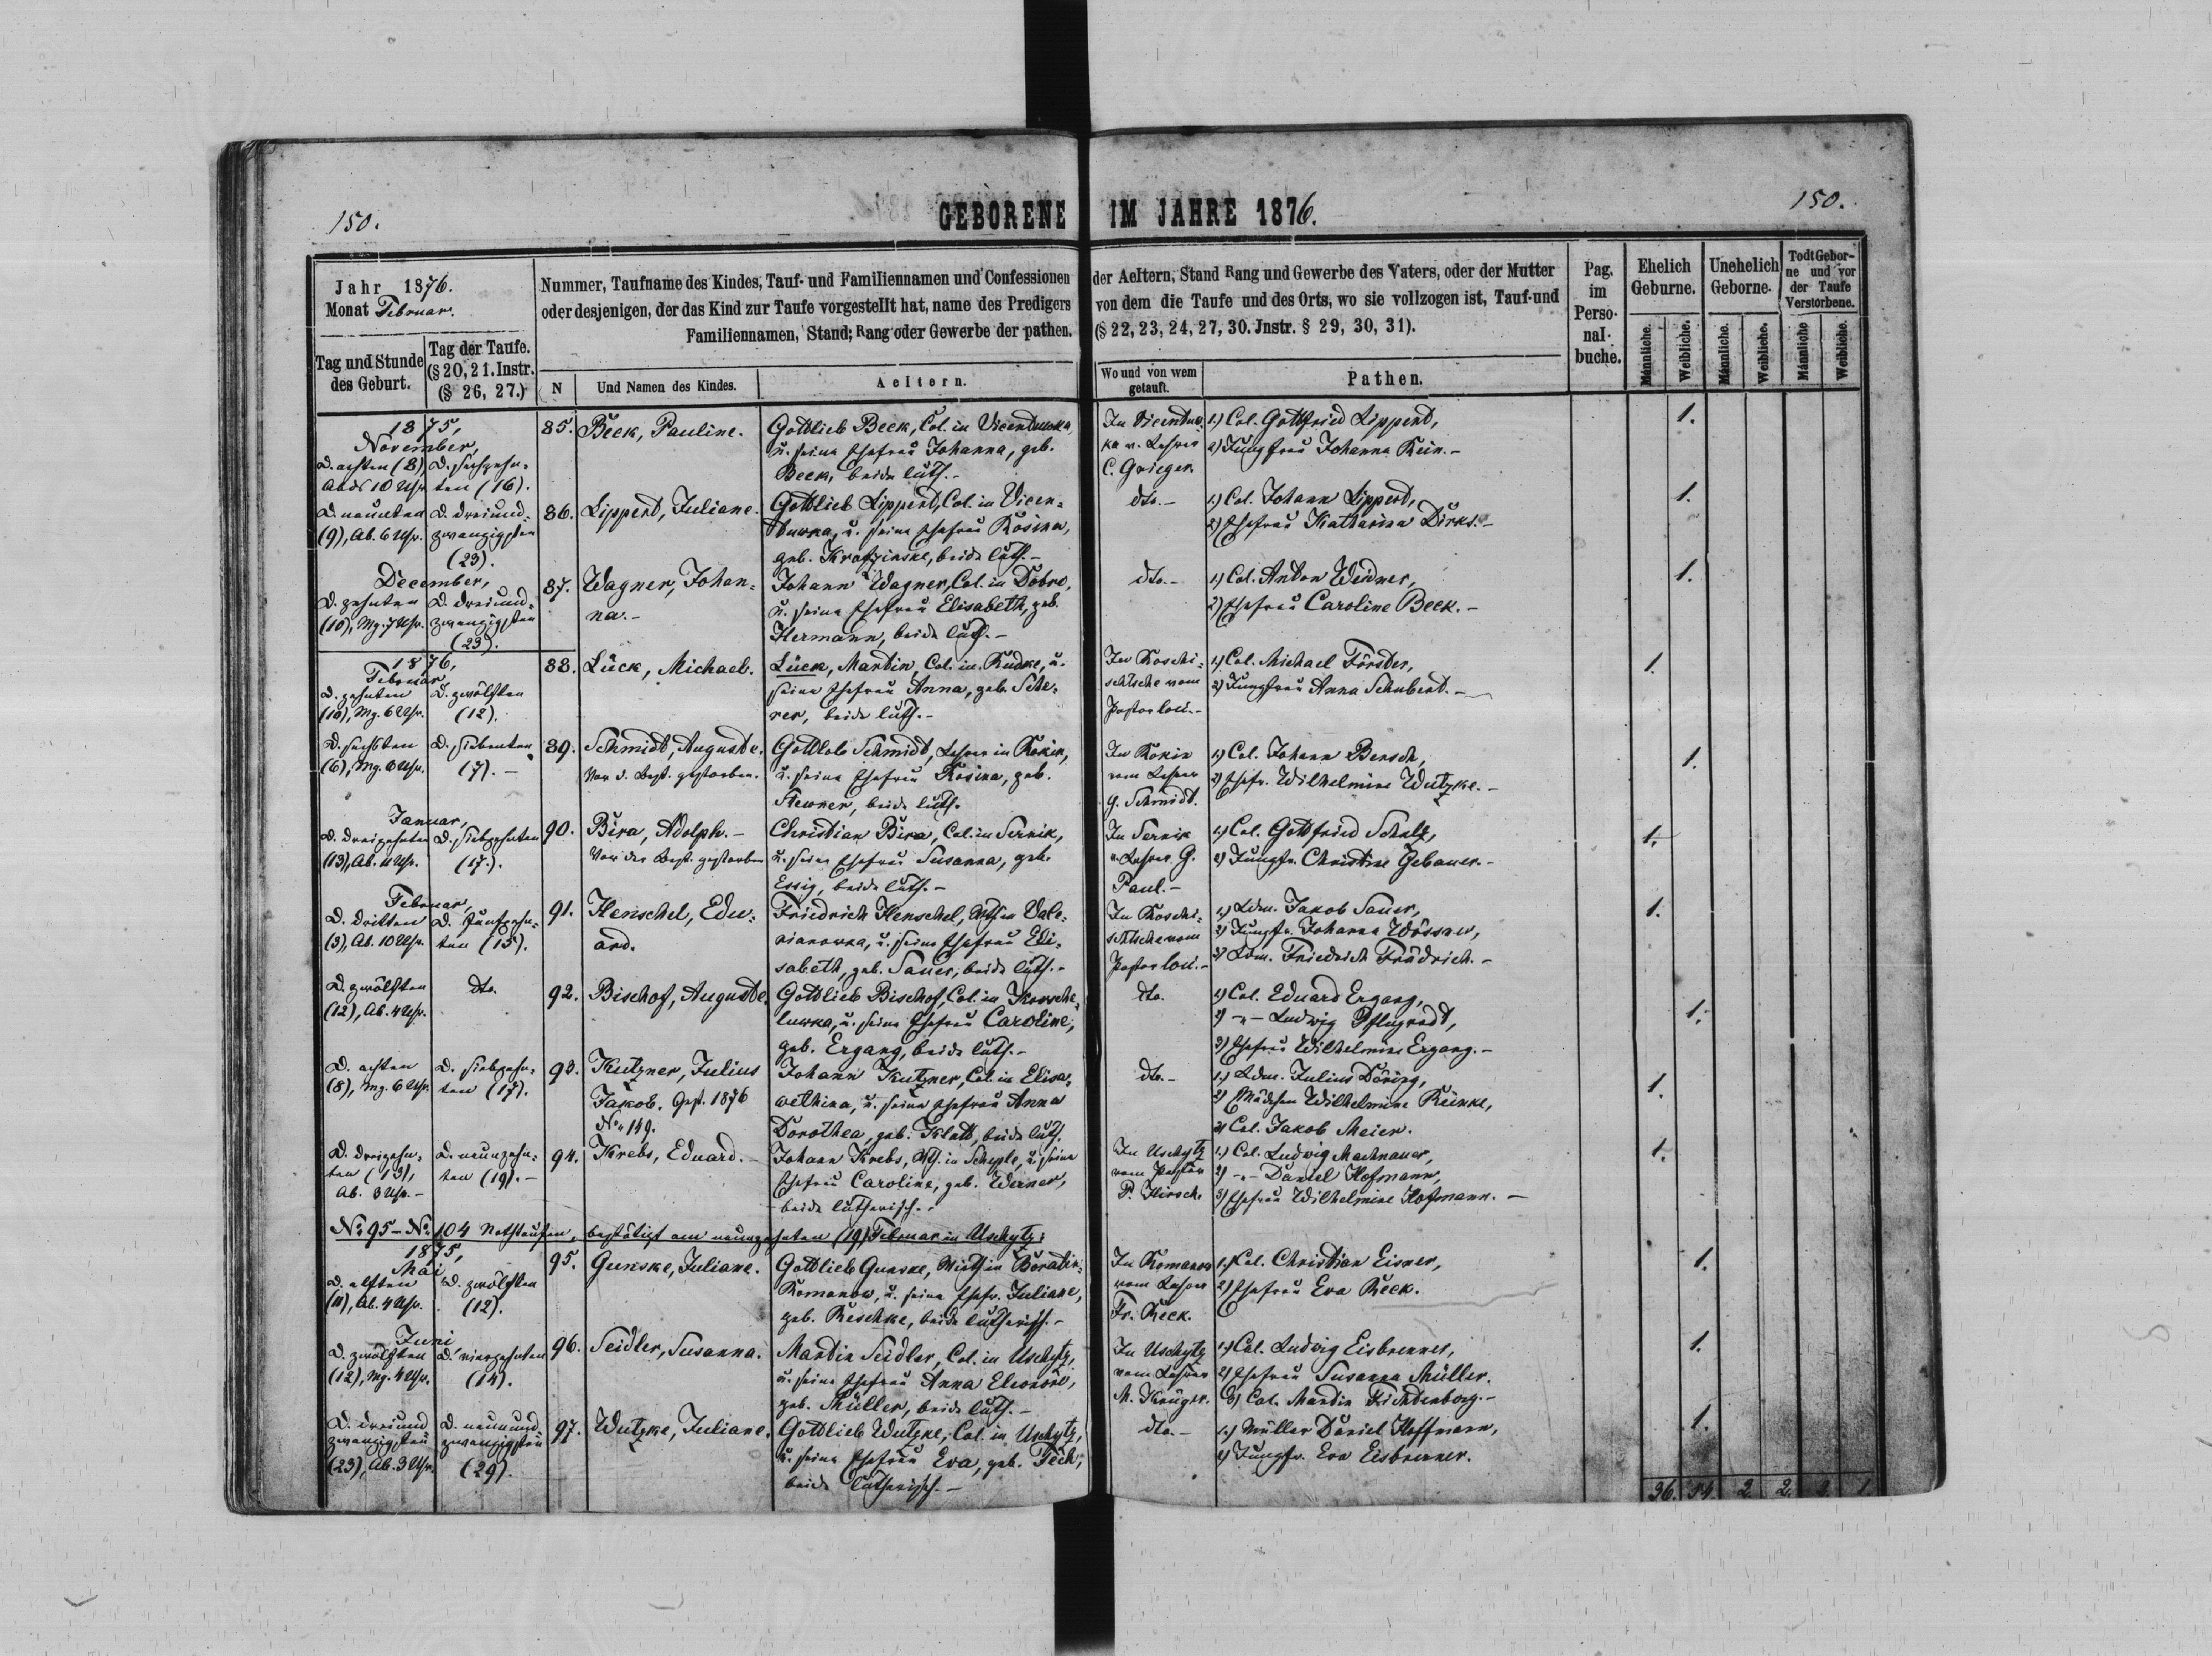 150.
GEBORENE IM JAHRE 1876.
150.
Jahr 1876.
Monat Februar.
Nummer, Taufname des Kindes, Tauf- und Familiennamen und Confessionen der Aeltern, Stand Rang und Gewerbe des Vaters, oder der Mutter
oder desjenigen, der das Kind zur Taufe vorgestellt hat, name des Predigers von dem die Taufe und des Orts, wo sie vollzogen ist, Tauf-und
Familiennamen, Stand; Rang oder Gewerbe der pathen. (§ 22, 23, 24, 27, 30. Jnstr. § 29, 30, 31).
Pag.
im
Perso-
nal-
buche.
Ehelich
Geburne.
Unehelich
Geborne.
Todt Gebor-
ne und vor
der Taufe
Verstorbene.
Männliche.
Weibliche.
Männliche.
Weibliche.
Männliche
Weibliche.
Tag und Stunde
des Geburt.
Tag der Taufe.
(§ 20, 21. Instr.
(§ 26, 27.)
N
Und Namen des Kindes.
Aeltern.
Wo und von wem
getauft.
Pathen.
1875,
November,
D. achten (8)
Abds 10 Uhr
D. sechzehn-
ten (16).
85.
Beck, Pauline.
Gottlieb Beck, Col. in Vicentuwka,
u. seine Ehefrau Johanna, geb.
Beck, beide luth.-
In Vicentuw-
ka v. Lehrer
C. Grieger.
1.) Col. Gottfried Lippert,
2) Jungfrau Johanna Rein.-
1.
D. neunten
(9), Ab. 6 Uhr.
D. dreiund-
zwanzigsten
(23).
86.
Lippert, Juliane.
Gottlieb Lippert, Col. in Vicen-
tuwka, u. seine Ehefrau Rosina,
geb. Kratzinske, beide luth.-
dto.-
1.) Col. Johann Lippert,
2) Ehefrau Katharina Dirks.-
1.
December,
D. zehnten
(10), Mg. 7 Uhr.
D. dreiund-
zwanzigsten
(23).
87.
Wagner, Johan-
na.-
Johann Wagner, Col. in Dobre,
u. seine Ehefrau Elisabeth, geb.
Hermann, beide luth.-
dto.-
1.) Col. Anton Weidner,
2) Ehefrau Caroline Beck.-
1.
1876,
Februar,
D. zehnten
(10), Mg. 6 Uhr.
D. zwölften
(12).
88.
Lück, Michael.
Lück, Martin, Col. in Rudke, u.
seine Ehefrau Anna, geb. Sche-
rer, beide luth.-
In Roschi-
schtsche vom
Pastor loci.-
1.) Col. Michael Förster,
2) Jungfrau Anna Schubert.-
1.
D. sechsten
(6), Mg. 6 Uhr.
D. siebenten
(7).-
89.
Schmidt, Auguste.
Vor d. Best. gestorben.
Gottlob Schmidt, Lehrer in Kokin,
u. seine Ehefrau Rosina, geb.
beide luth.
In Kokin
vom Lehrer
G. Schmidt.
1.) Col. Johann Bensch,
2) Ehefr. Wilhelmine Wutzke.-
1.
Januar,
D. dreizehnten
(13), Ab. 11 Uhr.
D. siebzehnten
(17.).
90.
Bira, Adolph.-
Vor der Best. gestorben
Christian Bira, Col. in Sernik,
u. seine Ehefrau Susanna, geb.
Essig, beide luth.-
In Sernik
v. Lehrer G.
Paul.-
1.) Col. Gottfried Schulz,
2) Jungfr. Christine Gebauer.-
1.
Februar,
D. dritten
(3), Ab. 10 Uhr.
D. fünfzehn-
ten (15).
91.
Henschel, Edu-
ard.
Friedrich Henschel, Wth. in Vale-
rianowka, u. seine Ehefrau Eli-
sabeth, geb. Sauer, beide luth.-
In Roschi-
schtsche vom
Pastor loci.-
1.) Ldm. Jakob Sauer,
2) Jungfr. Johanna Wössner,
3) Ldm. Friedrich Frädrich.-
1.
D. zwölften
(12), Ab. 4 Uhr.
dto.
92.
Bischof, Auguste.
Gottlieb Bischof, Col. in
luwka, u. seine Ehefrau Caroline,
geb. Ergang, beide luth.-
dto.
1) Col. Eduard Ergang,
2) -"- Ludwig Pflugradt,
3) Ehefrau Wilhelmine Ergang.-
1.
D. achten
(8), Mg. 6 Uhr.
D. siebzehn-
ten (17).
93.
Kutzner, Julius
Jakob. Gest. 1876
No. 149.
Johann Kutzner, Col. in Elisa-
wethina, u. seine Ehefrau Anna
Dorothea, geb. Klatt, beide luth.
dto.-
1.) Ldm. Julius Döring,
2) Mädchen Wilhelmine Reinke,
3) Col. Jakob Meier.
1.
D. dreizehn-
ten (13),
Ab. 3 Uhr.-
D. neunzehn-
ten (19).-
94.
Krebs, Eduard.-
Johann Krebs, Wth. in Scheple, u. seine
Ehefrau Caroline, geb. Werner,
beide lutherisch.-
In Uschytz
vom Pastor
P. Hirsch.
1.) Col. Ludwig Machnauer,
2) -"- Daniel Hofmann,
3) Ehefrau Wilhelmine Hofmann.-
1.
No. 95 - No. 104 Nothtaufen, bestätigt am neunzehnten (19) Februar in Uschytz:
1875,
Mai
D. elften
(11), Ab. 4 Uhr.
D. zwölften
(12).
95.
Gunske, Juliane.
Gottlieb Gunske, Wirth in Boratin-
Romanow, u. seine Ehefr. Juliane,
geb. Reschke, beide lutherisch.-
In Romanow
vom Lehrer
Fr. Reck.
1.) Col. Christian Eisner,
2) Ehefrau Eva Reck.
1.
Juni
D. zwölften
(12), Mg. 4 Uhr.
D. vierzehnten
(14).
96.
Seidler, Susanna.
Martin Seidler, Col. in Uschytz,
u. seine Ehefrau Anna Eleonore,
geb. Müller, beide luth.-
In Uschytz
vom Lehrer
M. Krüger.
1.) Col. Ludwig Eisbrenner,
2) Ehefrau Susanna Müller.
3) Col. Martin
1.
D. dreiund
zwanzigsten
(23), Ab. 3 Uhr.
D. neunund
zwanzigsten
(29).
97.
Wutzke, Juliane.
Gottlieb Wutzke, Col. in Uschytz,
u. seine Ehefrau Eva, geb. Tech,
beide lutherisch.-
dto.-
1.) Müller Daniel Hoffmann,
2) Jungfr. Eva Eisbrenner.
1.
36. 54. 2. 2. 2. 1